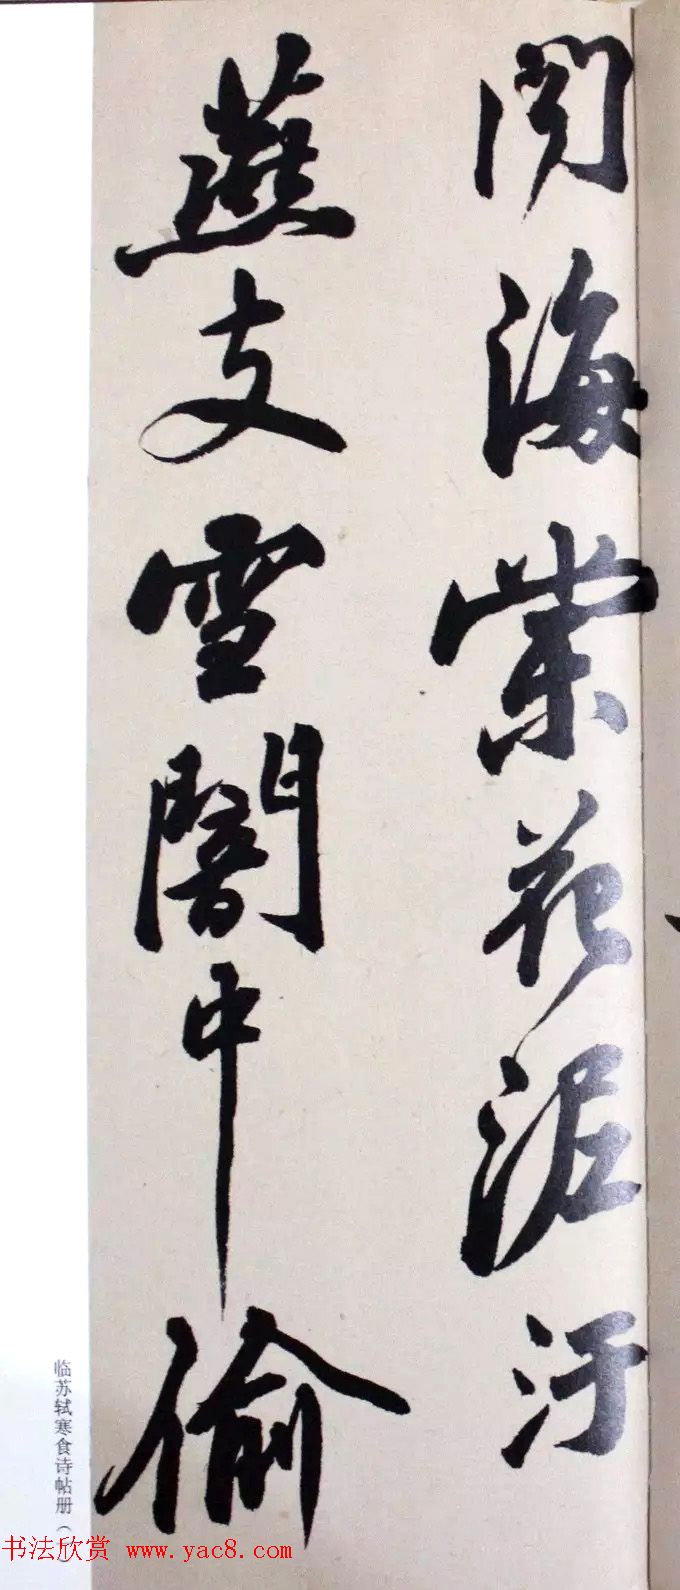 聞海棠花泥汙
燕支雪闇中偷
临苏轼寒食诗帖册
书法欣赏 www.yac8.com